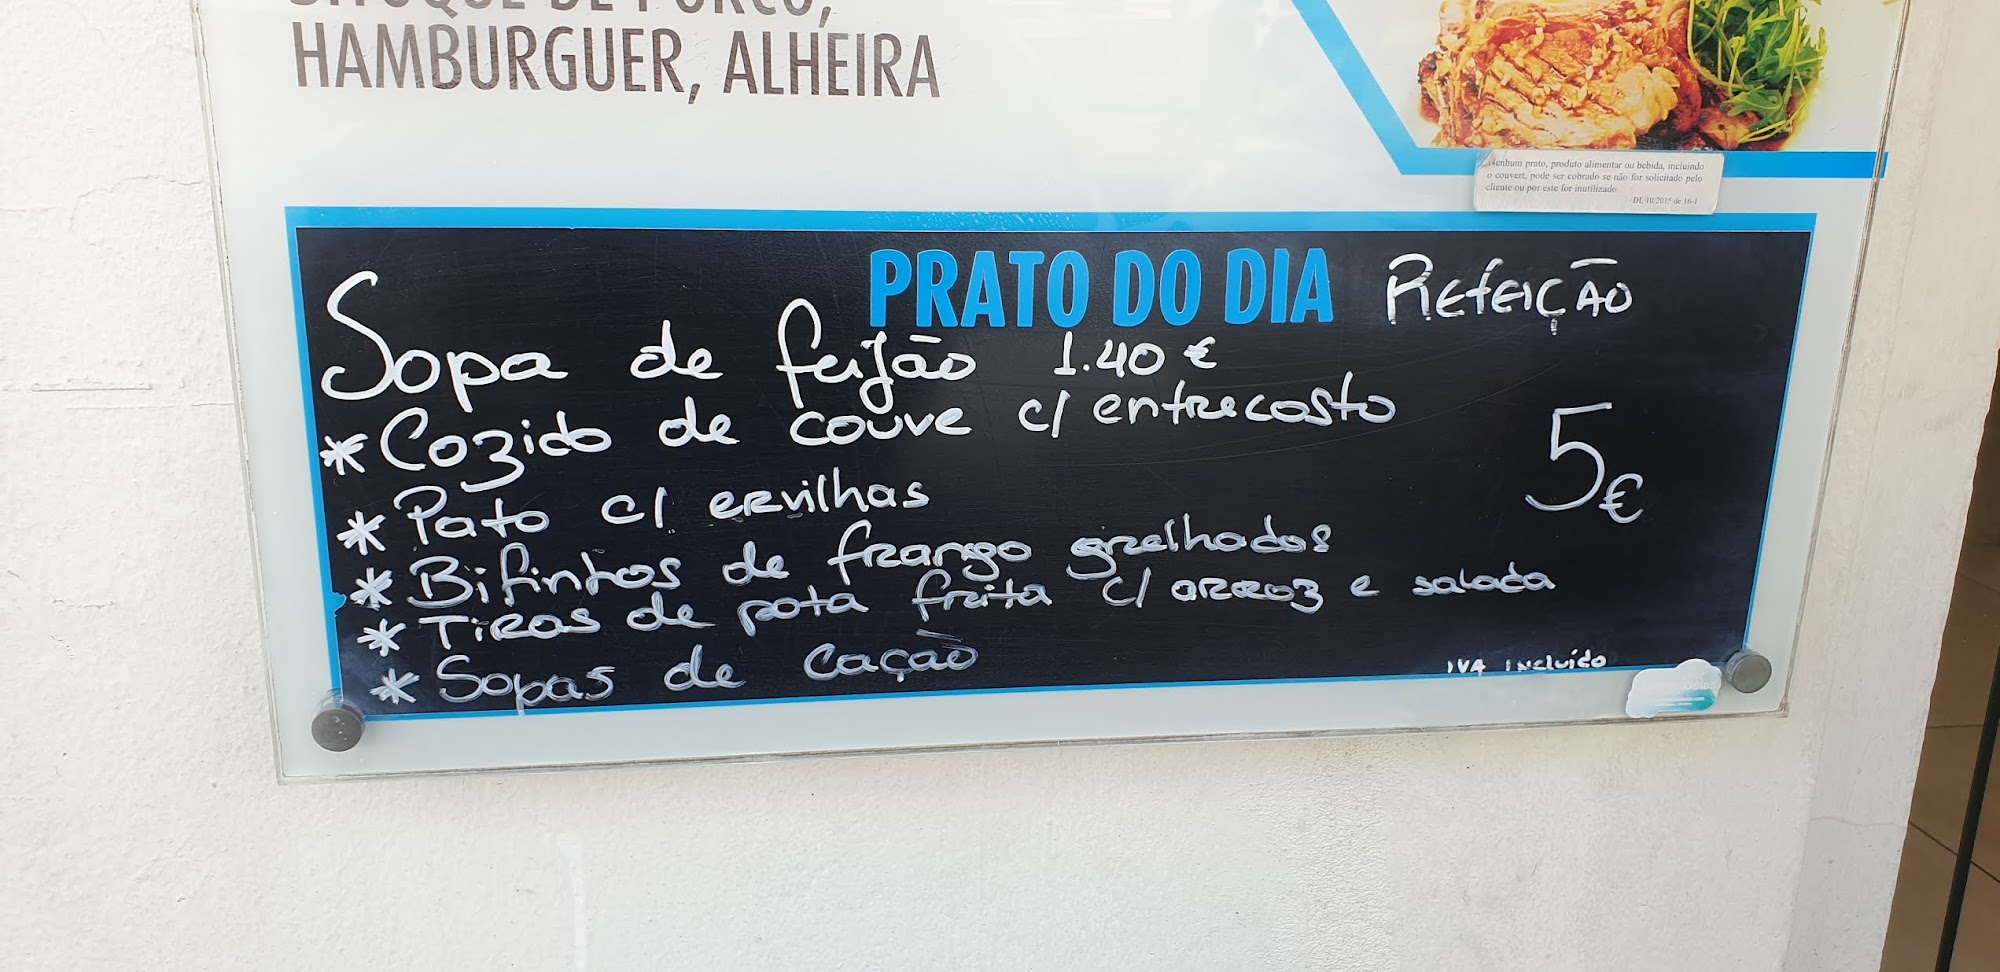 BITOQUE DE PORCO,
HAMBURGUER, ALHEIRA
Nenhum prato, produto alimentar ou bebida, incluindo
o couvert, pode ser cobrado se não for solicitado pelo
cliente ou por este for inutilizado
DL 10/2015 de 16-1
PRATO DO DIA Refeição
Sopa de feijão 1.40 €
* Cozido de couve c/ entrecosto
5€
* Pato c/ ervilhas
* Bifinhos de frango grelhados
* Tiras de pota frita c/ arroz e salada
* Sopas de cação
IVA incluído